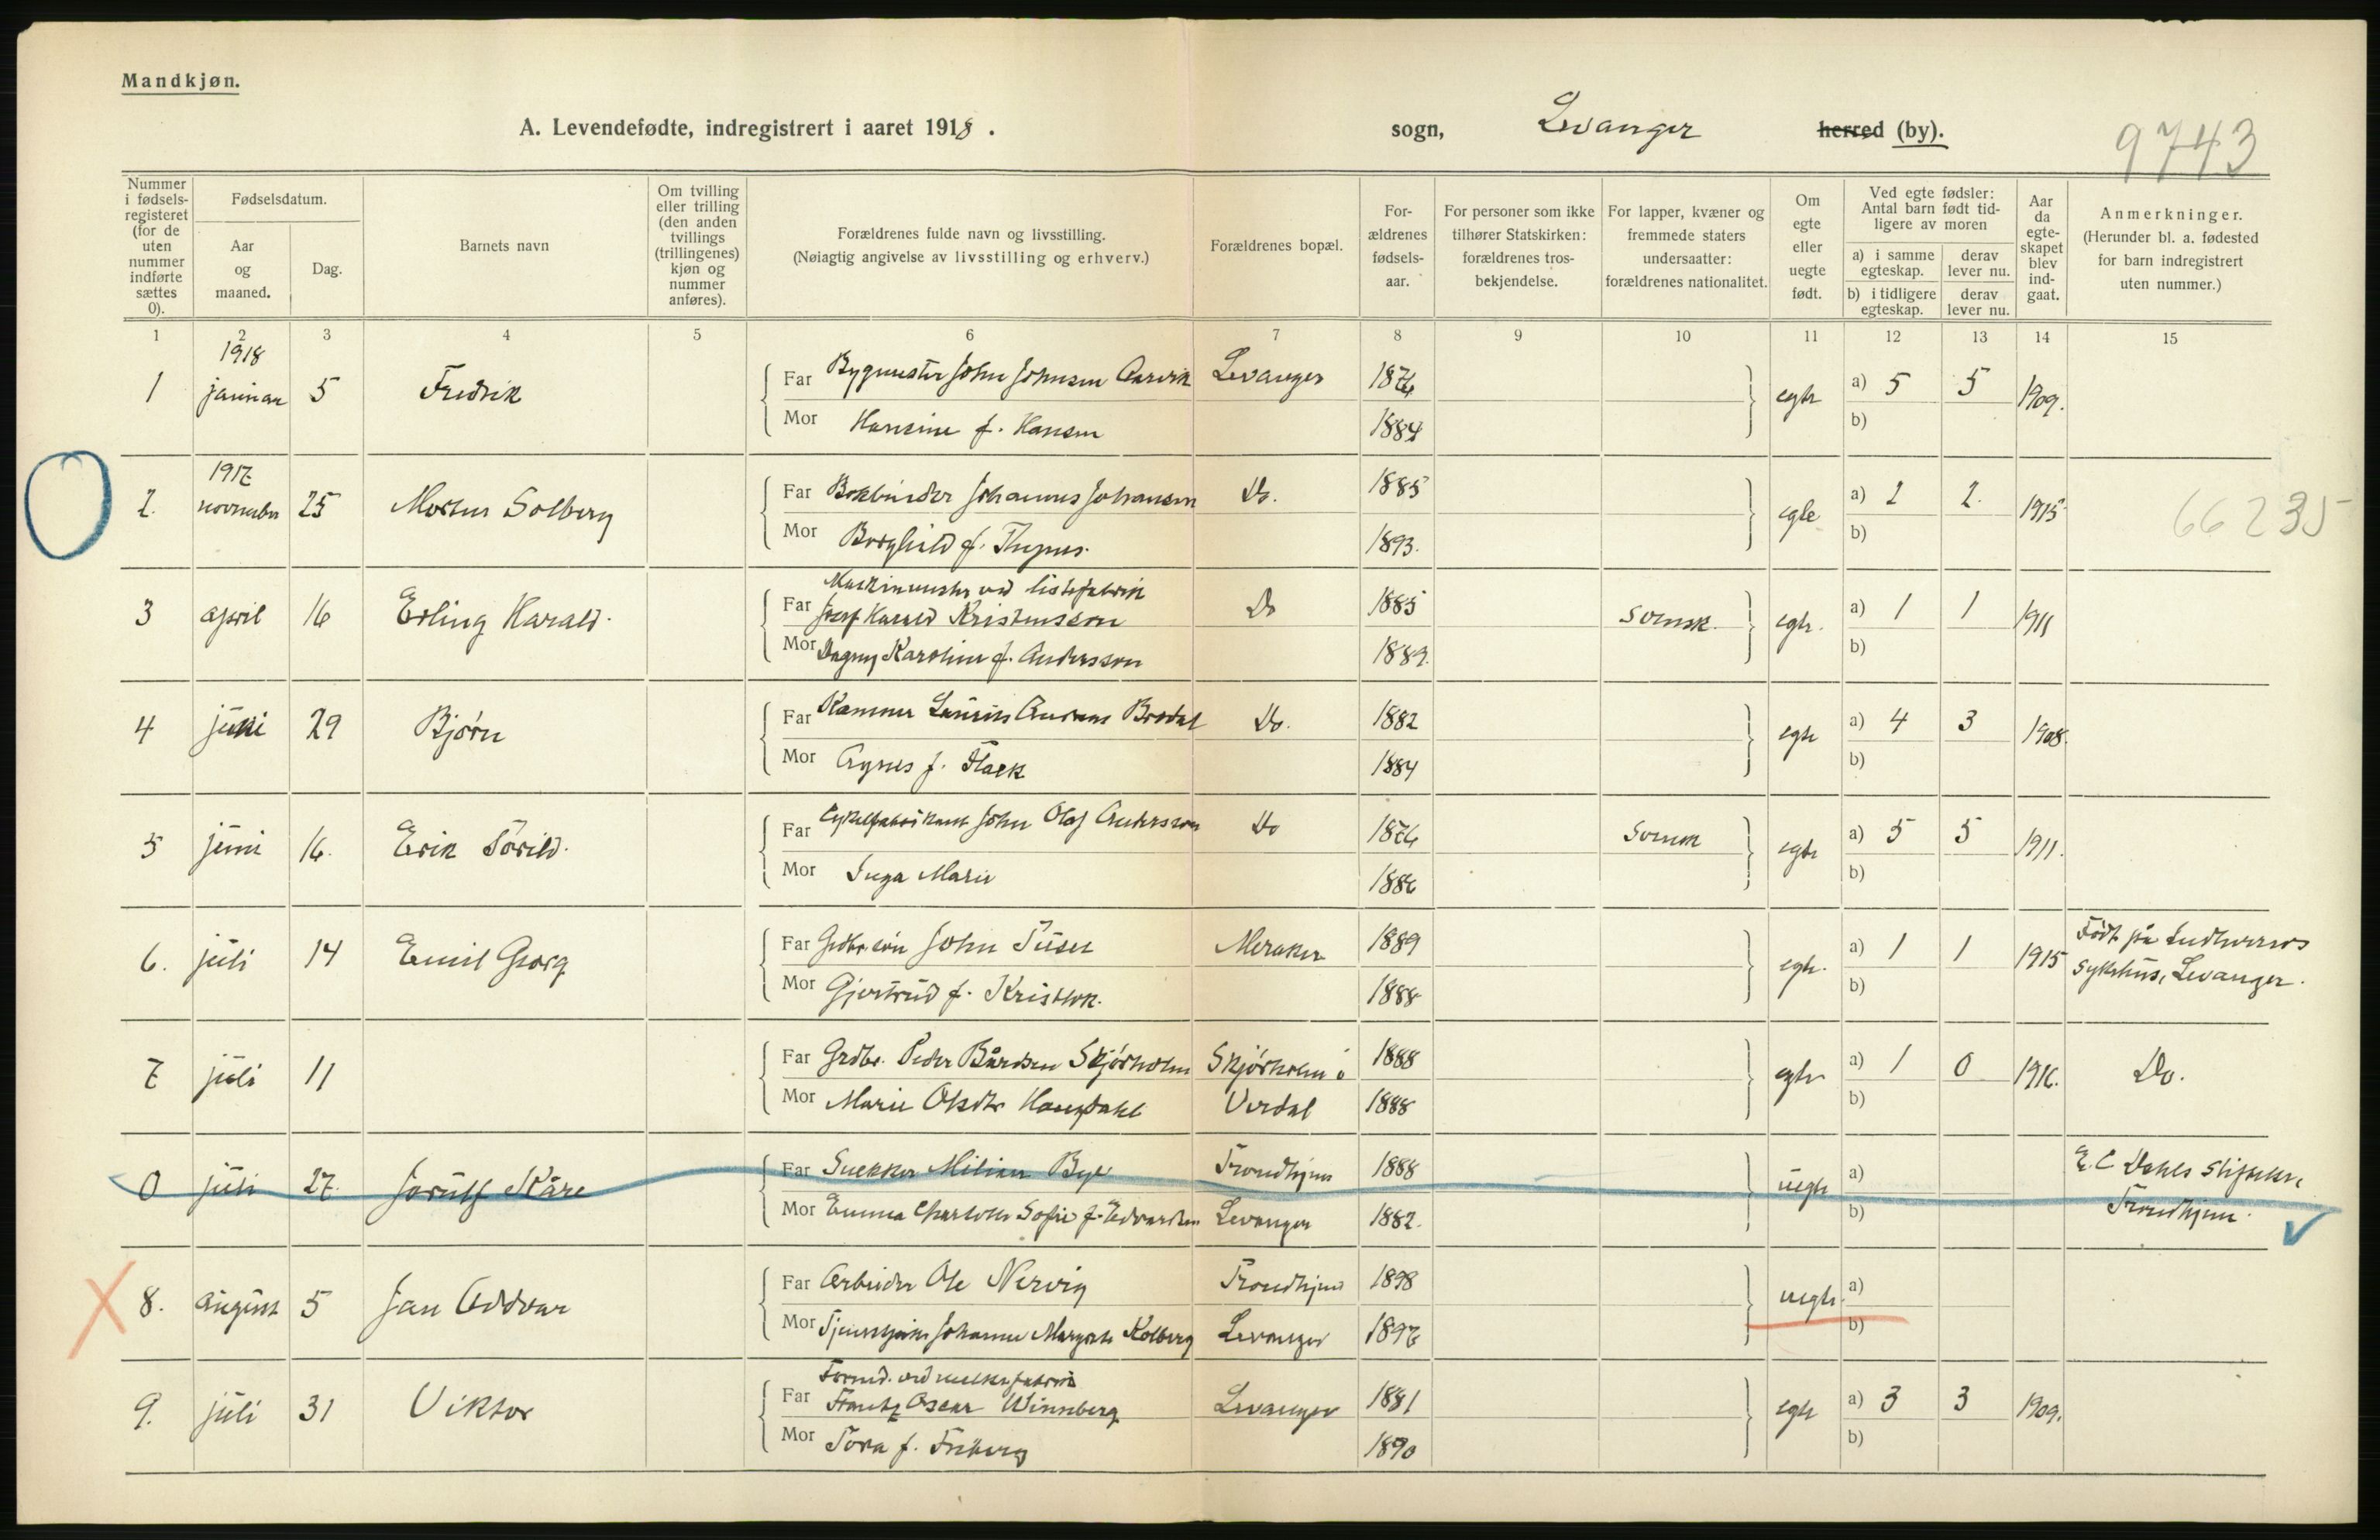 Mandkjøn.
A. Levendefødte, indregistrert i aaret 1918. sogn, Levanger herred (by). 9743
Nummer i fødsels-registeret (for de uten nummer indførte sættes 0).
Fødselsdatum.
Aar og maaned.
Dag.
Barnets navn
Om tvilling eller trilling (den anden tvillings (trillingenes) kjøn og nummer anføres).
Forældrenes fulde navn og livsstilling.
(Nøiagtig angivelse av livsstilling og erhverv.)
Forældrenes bopæl.
For-ældrenes fødsels-aar.
For personer som ikke tilhører Statskirken: forældrenes tros-bekjendelse.
For lapper, kvæner og fremmede staters undersaatter: forældrenes nationalitet.
Om egte eller uegte født.
Ved egte fødsler: Antal barn født tid-ligere av moren
a) i samme egteskap. derav lever nu.
b) i tidligere egteskap. derav lever nu.
Aar da egte-skapet blev ind-gaat.
Anmerkninger.
(Herunder bl. a. fødested for barn indregistrert uten nummer.)
1 2 3 4 5 6 7 8 9 10 11 12 13 14 15
1918
1 januar 5 Fredrik Far Bygmester John Johnsen Aarvik Levanger 1876 egte a) 5 5 1909.
Mor Hansine f. Hansen 1884 b)
1917
2. november 25 Morten Solberg Far Bokbinder Johannes Johansen Do. 1885 egte a) 2 2. 1915 66235
Mor Borghild f. Thynes. 1893. b)
Maskinmester ved listefabrik
3 april 16 Erling Harald. Far Josef Harald Kristensson Do 1885 svensk. egte. a) 1 1 1911
Mor Dagny Karoline f. Andersson 1889. b)
4 juni 29 Bjørn Far Kemner Laurits Andreas Brodal Do. 1882 egte a) 4 3 1908.
Mor Agnes f. Flaek 1884 b)
5 juni 16. Erik Torild. Far Cykelfabrikant John Olaf Andersson Do 1876 svensk egte a) 5 5 1911.
Mor Inga Marie 1886 b)
6. juli 14 Emil Georg Far Grdbr. søn John Tuset Meraker 1889 egte. a) 1 1 1915 Født på Indherreds
Mor Gjertrud f. Kristvik. 1888 b) sykehus, Levanger.
7 juli 11 Far Grdbr. Peder Bårdsen Skjørholm Skjørholm i 1888 egte a) 1 0 1916. Do.
Mor Marie Olsdtr Haugdahl Verdal 1888 b)
0 juli 27. Jorulf Kåre Far Snekker Milian Bye Trondhjem 1888 uegte a) E. C. Dahls stiftelse,
Mor Emma Charlotte Sofie f. Edvardsen Levanger 1882. b) Trondhjem.
8. august 5 Jan Oddvar Far Arbeider Ole Nervig Trondhjem 1898 uegte. a)
Mor Tjenestepike Johanne Margrete Kolberg Levanger 1897 b)
Formd. ved melkefabrik
9. juli 31 Viktor Far Frantz Oscar Winnberg Levanger 1881 egte a) 3 3 1909.
Mor Tora f. Friberg 1890 b)